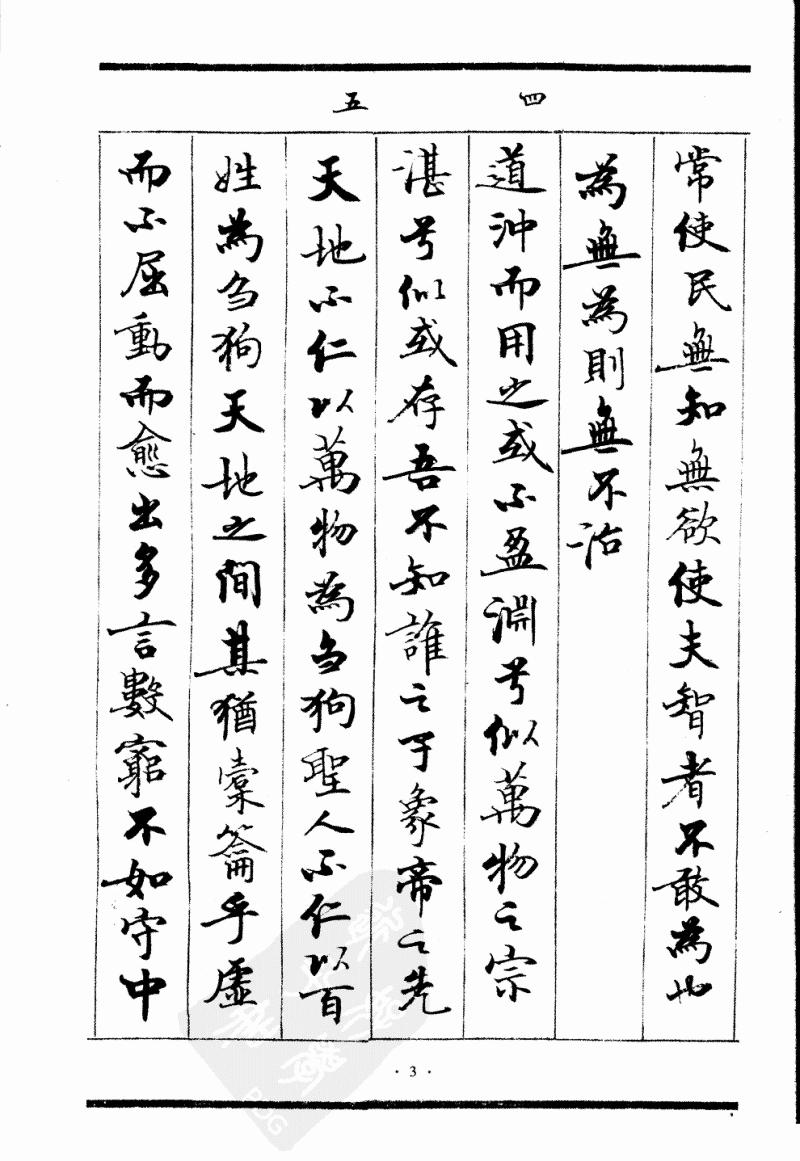 四
五
常使民無知無欲使夫智者不敢為也
為無為則無不治
道沖而用之或不盈淵兮似萬物之宗
湛兮似或存吾不知誰之子象帝之先
天地不仁以萬物為芻狗聖人不仁以百
姓為芻狗天地之間其猶橐籥乎虛
而不屈動而愈出多言數窮不如守中
· 3 ·
PDG